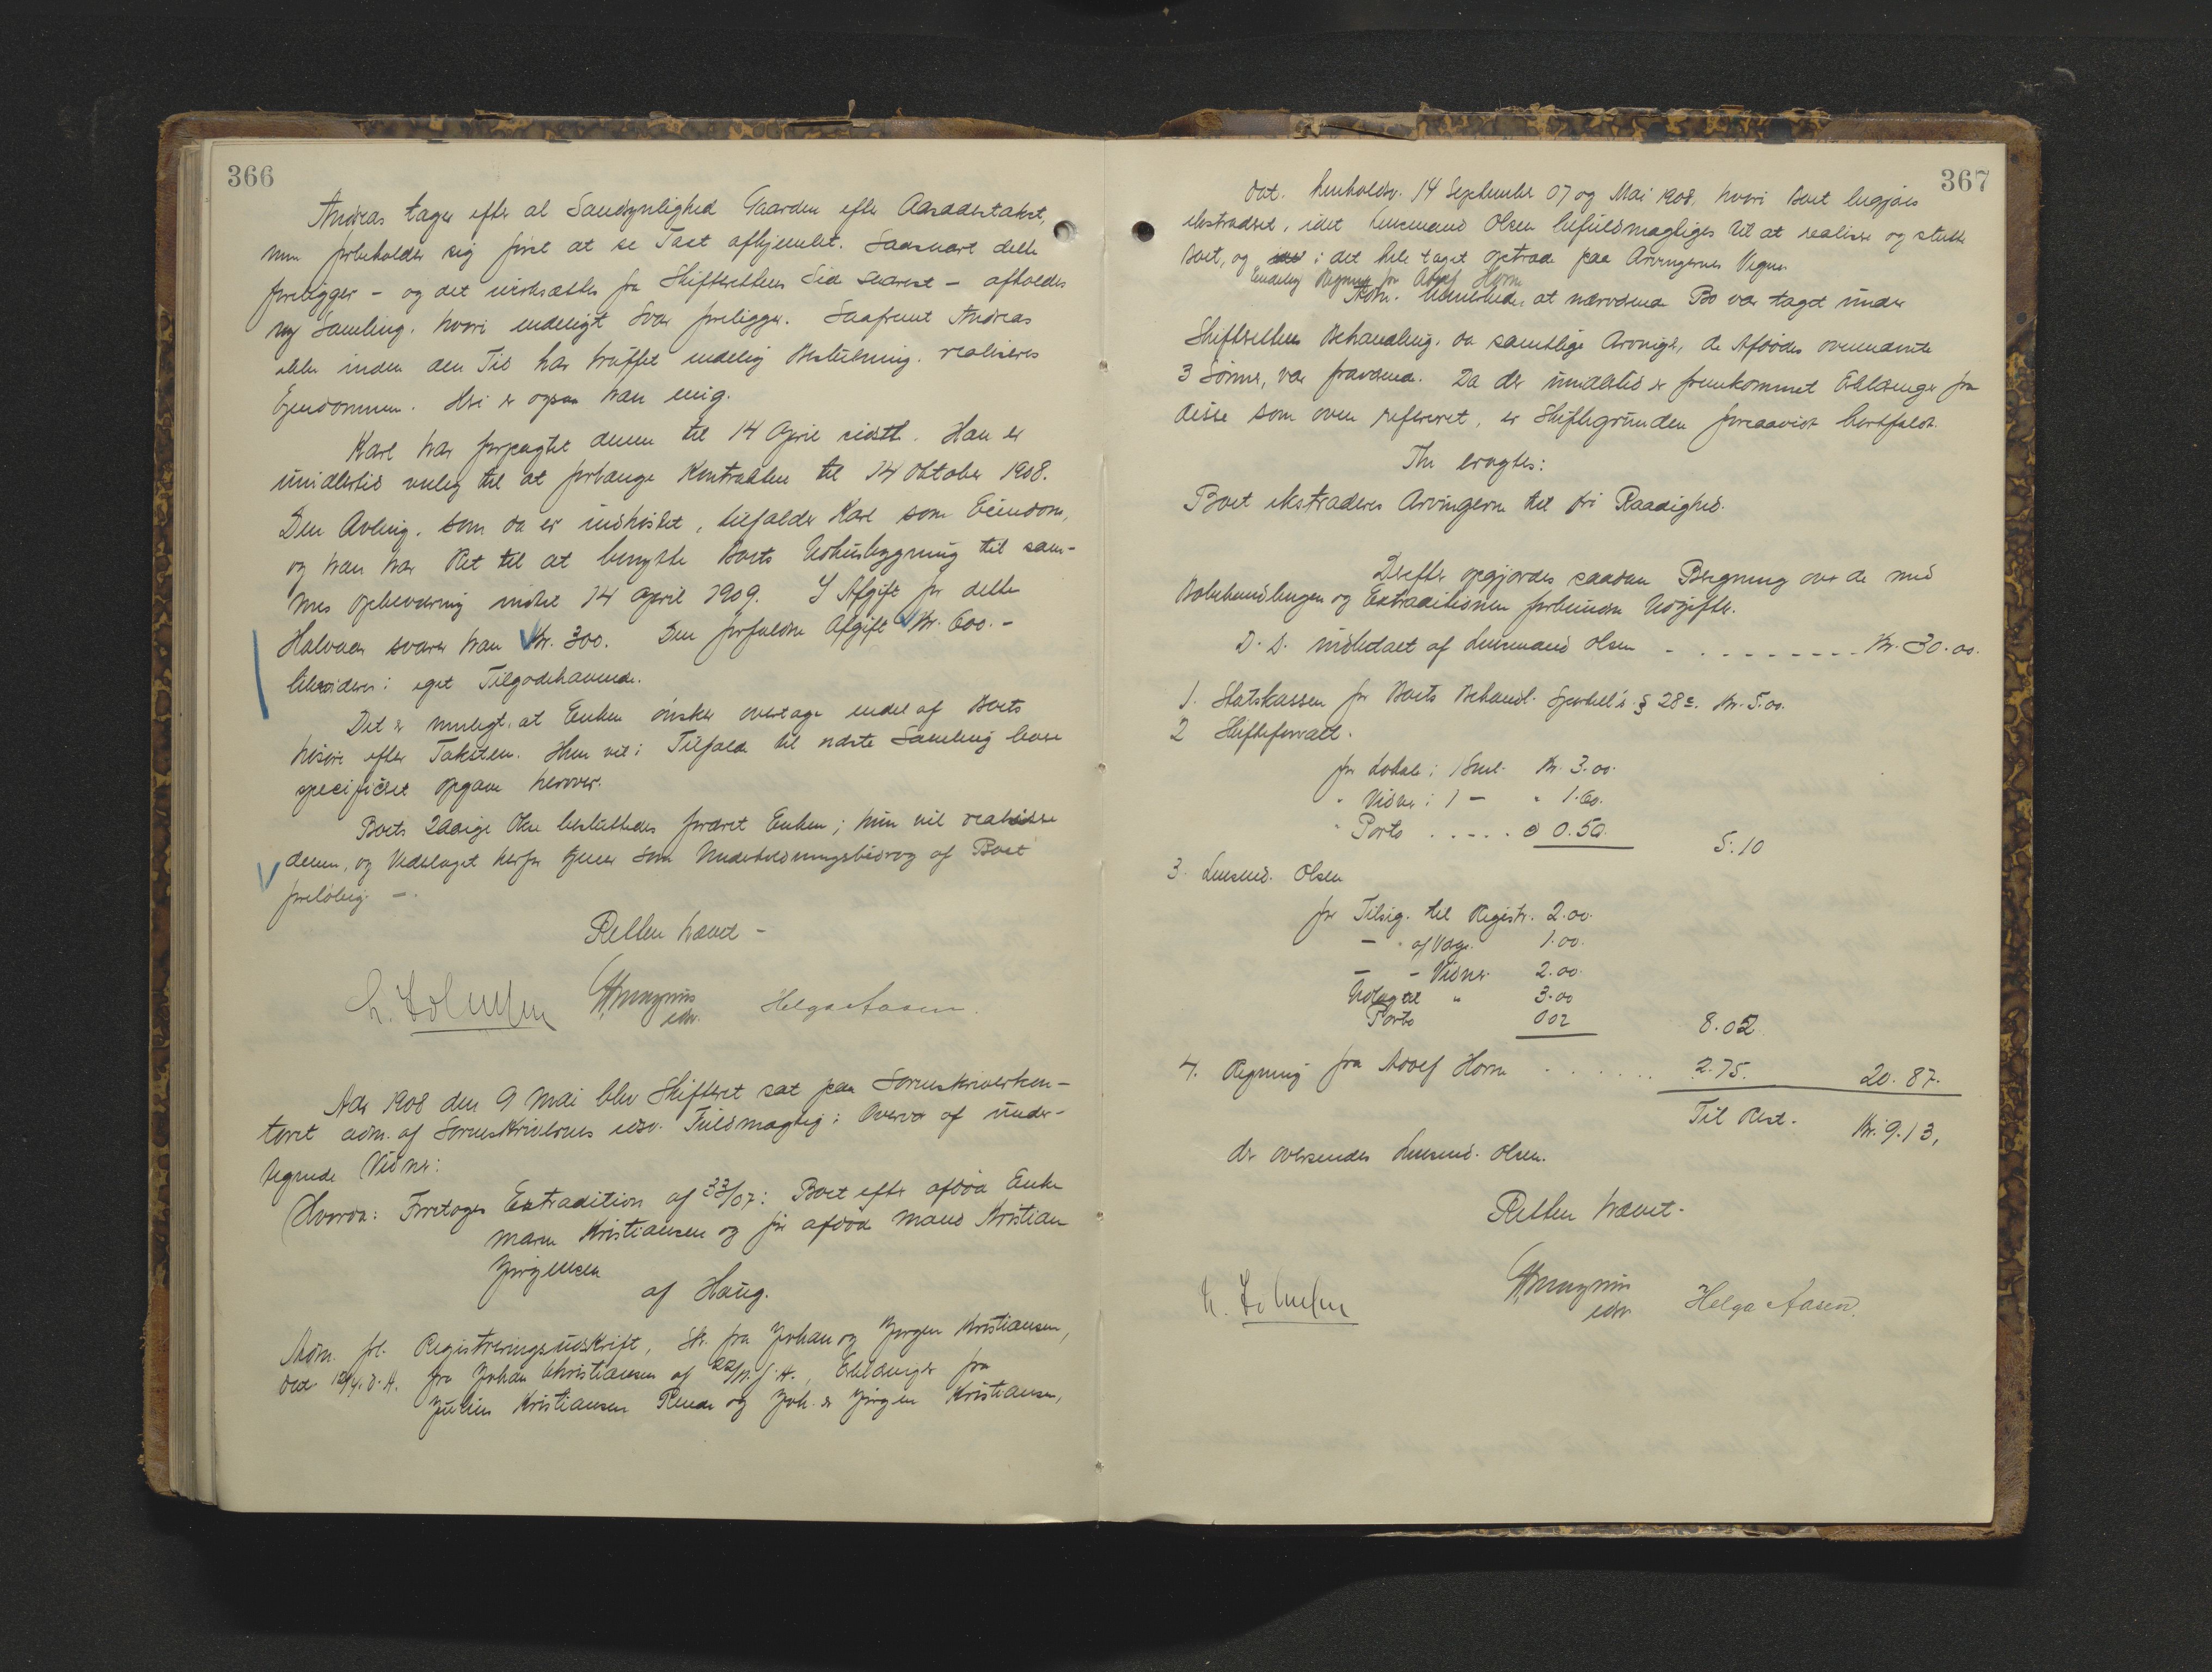 366
Andreas tager efter al Sandsynlighed Gaarden efter Aasædestakst,
men forbeholder sig først at se Taxt afhjemlet. Saasnart dette
foreligger - og det iverksættes fra Skifterettens Side snarest - afholdes
ny Samling, hvori endeligt Svar foreligger. Saafremt Andreas
ikke inden den Tid har truffet endelig Beslutning, realiseres
Ejendommen. Heri er ogsaa han enig.
Karl har forpagtet denne til 14 April sidstl. Han er
imidlertid villig til at forlænge Kontrakten til 14 Oktober 1908.
Den Avling, som da er indhøstet, tilfalder Karl som Eiendom,
og han har Ret til at benytte Boets Udhusbygning til sam-
mes Opbevaring indtil 14 April 1909. I Afgift for dette
Halvaar svarer han Kr. 300. Den forfaldne Afgift Kr. 600.-
likvideres i eget Tilgodehavende.
Det er muligt, at Enken ønsker overtage endel af Boets
Løsøre efter Taksten. Hun vil i Tilfælde til næste Samling have
specificeret Opgave herover.
Boets 2aarige Okse besluttedes foræret Enken; hun vil realisere
denne, og Vederlaget herfor tjener som Underholdningsbidrag af Boet
foreløbig -.
Retten hævet -
L. Holmsen
edsv.
Helga Aasen.
Aar 1908 den 9 Mai blev Skifteret sat paa Sorenskriverkon-
toret adm. af Sorenskriverens edsv. Fuldmægtig i Overvær af under-
tegnede Vidner:
Hvorda: Foretoges Extradition af 33/07: Boet efter afdøde Enke
Maren Kristiansen og før afdøde Mand Kristian
Jørgensen
af Haug.
Adm. frl. Registreringsudskrift, Sk. fra Johan og Jørgen Kristiansen,
dat 12/4. d. A. fra Johan Christiansen af 22/11. f. A., Erklæringer fra
Julius Kristiansen Rende og Joh. & Jørgen Kristiansen,
367
dat. henholdsv. 14 September 07 og Mai 1908, hvori Boet begjæres
ekstraderet, idet Lensmand Olsen befuldmægtiges til at realisere og slutte
Boet, og i det hele taget optræde paa Arvingernes Vegne.
Endelig Regning fra Adolf Horn
Adm. bemerkede, at nærværende Bo var taget under
Skifterettens Behandling, da samtlige Arvinger, de Afdødes ovennævnte
3 Sønner, var fraværende. Da der imidlertid er fremkommet Erklæringer fra
disse som oven refereret, er Skiftegrunden forsaavidt bortfaldt.
Thi eragtes:
Boet ekstraderes Arvingerne til fri Raadighed.
Derefter opgjordes saadan Beregning over de med
Bobehandlingen og Extraditionen forbundne Udgifter.
D. D. indbetalt af Lensmand Olsen - - - - - - - - - Kr. 30.00.
1. Statskassen for Boets Behandl. Sportell. § 28 c. Kr. 5.00.
2 Skifteforvalt.
for Lokale i 1 Saml. Kr. 3.00.
" Vidner i 1 - " 1.60.
" Porto . . . . . " 0.50. 5.10
3. Lensmd. Olsen
for Tilsig. til Registr. 2.00.
- " af Værge. 1.00.
- - Vidner 2.00.
Udlæg til " 3.00
Porto 0 02 8.02
4. Regning fra Adolf Horn . . . . . . 2.75. 20.87.
Til Rest. Kr. 9.13,
der oversendes Lensmd. Olsen.
Retten hævet.
L. Holmsen
edsv
Helga Aasen.